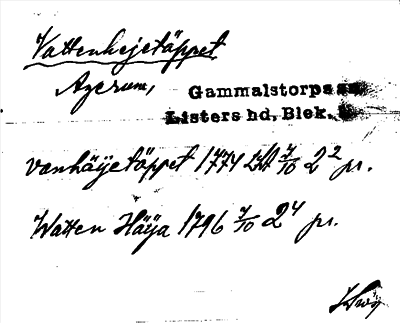 Vattenhejetäppet
Agerum,
Gammalstorps sn
Listers hd, Blek. l.
vanhäÿetäppet 1774 LHA 7/10 2² pr.
Watten Häÿa 1796 7/10 2⁴ pr.